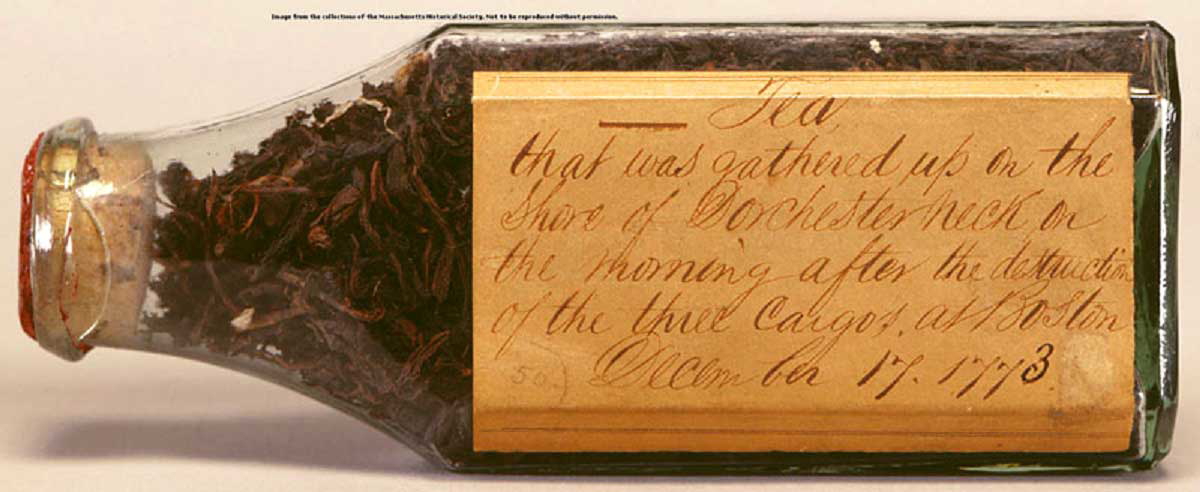 Image from the collections of the Massachusetts Historical Society. Not to be reproduced without permission.
Tea
that was gathered up on the
Shore of Dorchester Neck on
the morning after the destruction
of the three Cargos at Boston
December 17. 1773
50.)